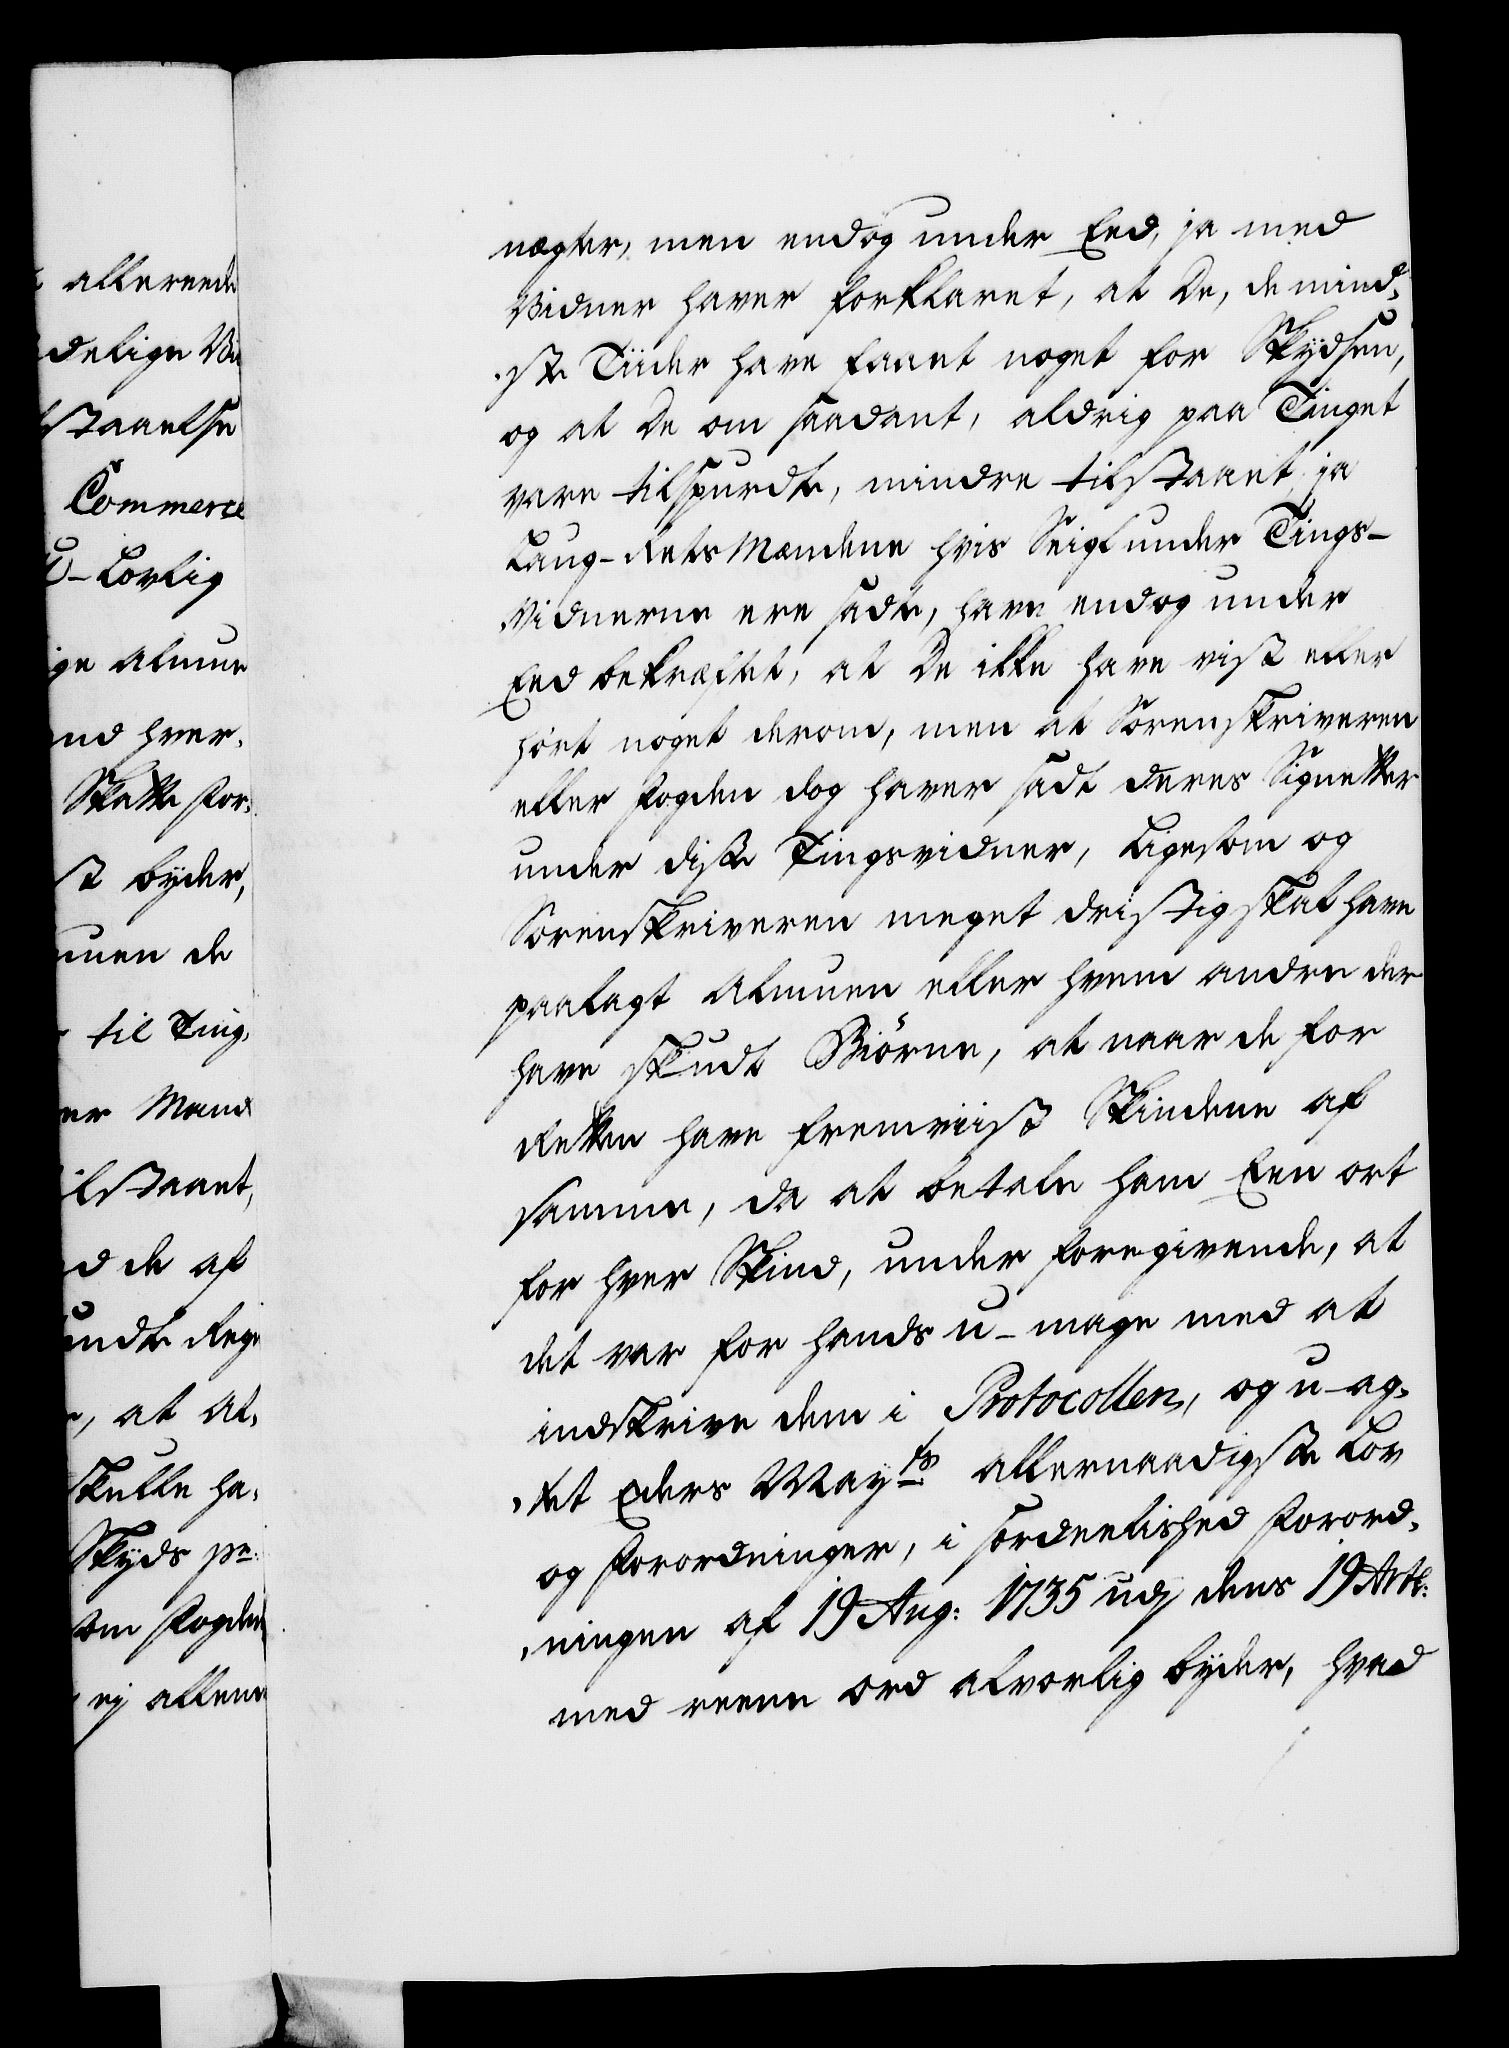 allereede
delige Vi
staaelse
Commerce
U-Lovlig
ge almue
nd hver,
Skatte for,
st byder,
muen de
til Ting,
er Mand
ilstaaet,
d de af
undte Rege
, at al,
skulle ha,
Skyds pe:
om Fogden
ej allene
nægter, men endog under Eed, ja med
Vidner haver forklaret, at De, de mind,
,ste Tiider have faaet noget for Skydsen,
og at De om saadant, aldrig paa Tinget
vare tilspurdte, mindre tilstaaet, ja
Laug-Rets Mændene hvis Seigl under Tings-
Vidnerne ere sadte, have endog under
Eed bekræftet, at De ikke have vist eller
hört noget derom, men at Sorenskriveren
eller Fogden dog haver sadt deres Signetter
under disse Tingsvidner, Ligesom og
Sorenskriveren meget dristig skal have
paalagt Almuen eller hvem andre der
have skudt Biörne, at naar de for
Retten have fremviist Skindene af
samme, da at betale ham Een ort
for hver Skind, under foregivende, at
det var for hands u-mage med at
indskrive dem i Protocollen, og u-ag,
,tet Eders May<sup>ts</sup> allernaadigste Lov
og Forordninger, i særdeelished Forord,
,ningen af 19 Aug: 1735 udj dens 19 Artl:
med reene ord alvorlig byder, hvad